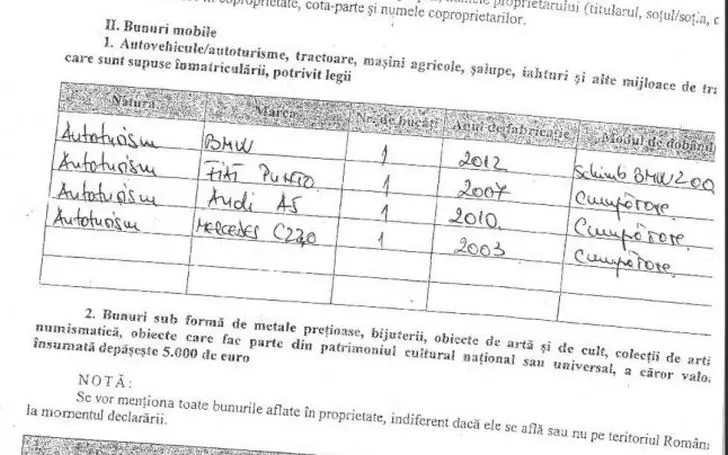 în coproprietate, cota-parte şi numele coproprietarilor.
proprietarului (titularul, soţul/soţia, c
II. Bunuri mobile
1. Autovehicule/autoturisme, tractoare, maşini agricole, şalupe, iahturi şi alte mijloace de tra
care sunt supuse înmatriculării, potrivit legii
Natura Marca Nr. de bucăţi Anul de fabricaţie Modul de dobând
Autoturism BMW 1 2012 Schimb BMW 200
Autoturism FIAT PUNTO 1 2007 Cumpărare
Autoturism Audi A5 1 2010 Cumpărare
Autoturism MERCEDES C220 1 2003 Cumpărare
2. Bunuri sub formă de metale preţioase, bijuterii, obiecte de artă şi de cult, colecţii de arti
numismatică, obiecte care fac parte din patrimoniul cultural naţional sau universal, a căror valo
însumată depăşeşte 5.000 de euro
NOTĂ:
Se vor menţiona toate bunurile aflate în proprietate, indiferent dacă ele se află sau nu pe teritoriul Român
la momentul declarării.